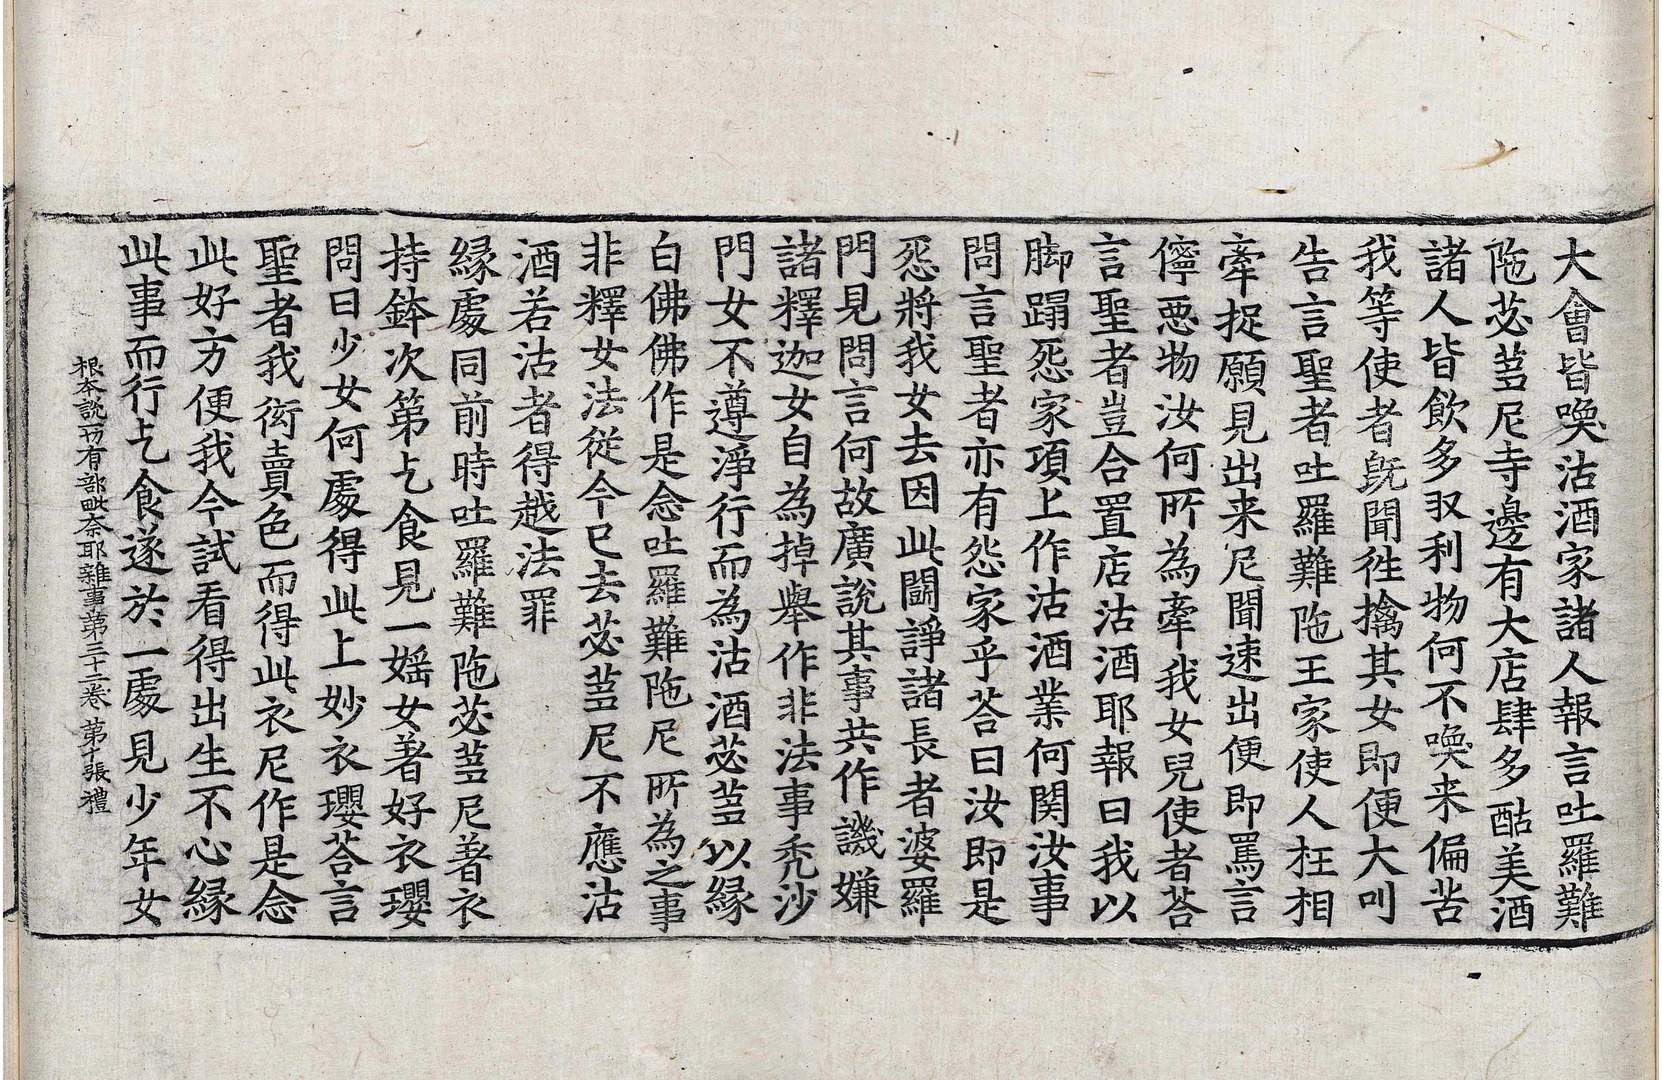 大會皆喚沽酒家諸人報言吐羅難
陁苾蒭尼寺邊有大店肆多酤美酒
諸人皆飲多収利物何不喚来偏苦
我等使者旣聞徃擒其女即便大叫
告言聖者吐羅難陁王家使人枉相
牽捉願見出来尼聞速出便即罵言
儜惡物汝何所為牽我女兒使者荅
言聖者豈合置店沽酒耶報曰我以
脚蹋怨家項上作沽酒業何関汝事
問言聖者亦有怨家乎荅曰汝即是
怨將我女去因此鬪諍諸長者婆羅
門見問言何故廣說其事共作譏嫌
諸釋迦女自為掉舉作非法事禿沙
門女不遵淨行而為沽酒苾蒭以緣
白佛佛作是念吐羅難陁尼所為之事
非釋女法從今已去苾蒭尼不應沽
酒若沽者得越法罪
緣處同前時吐羅難陁苾蒭尼著衣
持鉢次第乞食見一婬女著好衣瓔
問曰少女何處得此上妙衣瓔荅言
聖者我衒賣色而得此衣尼作是念
此好方便我今試看得出生不心緣
此事而行乞食遂於一處見少年女
根本說一切有部毗奈耶雜事第三十二卷 第十張 禮